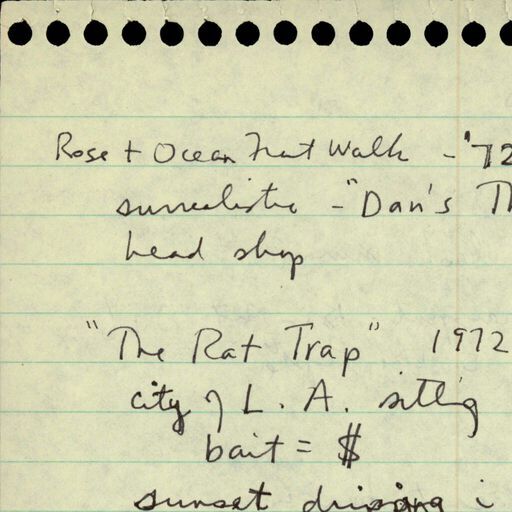 Rose + Ocean Front Walk - '72
surrealistic - "Dan's Th
head shop
"The Rat Trap" 1972
city of L.A. sitting
bait = $
sunset dripping i